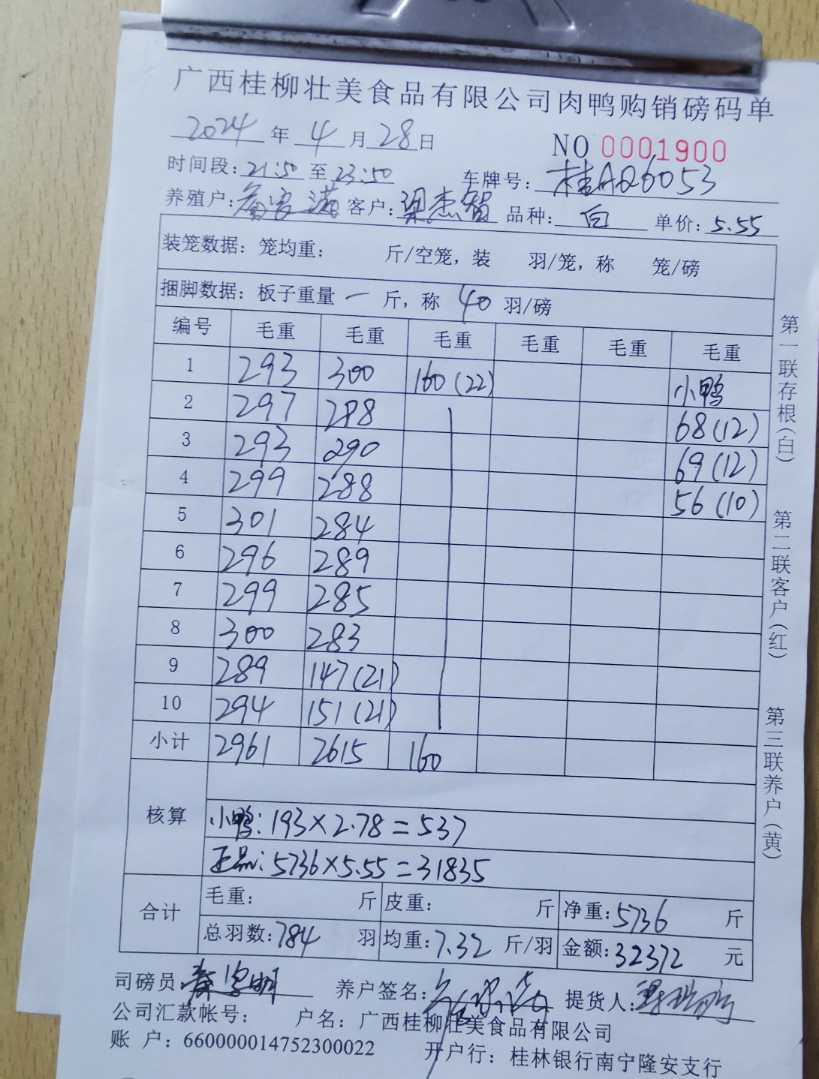 广西桂柳壮美食品有限公司肉鸭购销磅码单
2024 年 4 月 28 日 NO 0001900
时间段: 21:50 至 23:50 车牌号: 桂AQ6053
养殖户: 客户: 梁杰智 品种: 白 单价: 5.55
装笼数据: 笼均重: 斤/空笼, 装 羽/笼, 称 笼/磅
捆脚数据: 板子重量 一 斤, 称 40 羽/磅
编号 毛重 毛重 毛重 毛重 毛重 毛重
1 293 300 160(22) 小鸭
2 297 288 68(12)
3 293 290 69(12)
4 299 288 56(10)
5 301 284
6 296 289
7 299 285
8 300 283
9 289 147(21)
10 294 151(21)
小计 2961 2615 160
核算
小鸭: 193×2.78=537
正品: 5736×5.55=31835
合计 毛重: 斤 皮重: 斤 净重: 5736 斤
总羽数: 784 羽 均重: 7.32 斤/羽 金额: 32372 元
司磅员: 养户签名: 提货人:
公司汇款帐号: 户名: 广西桂柳壮美食品有限公司
账 户: 660000014752300022 开户行: 桂林银行南宁隆安支行
第一联存根(白)
第二联客户(红)
第三联养户(黄)